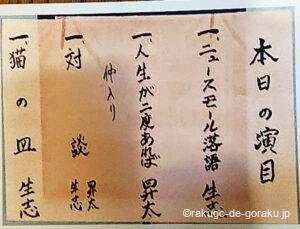 本日の演目
一、ニュースモール落語 生志
一、人生が二度あれば 昇太
仲入り
一、対談 昇太
生志
一、猫の皿 生志
©rakugo-de-goraku.jp